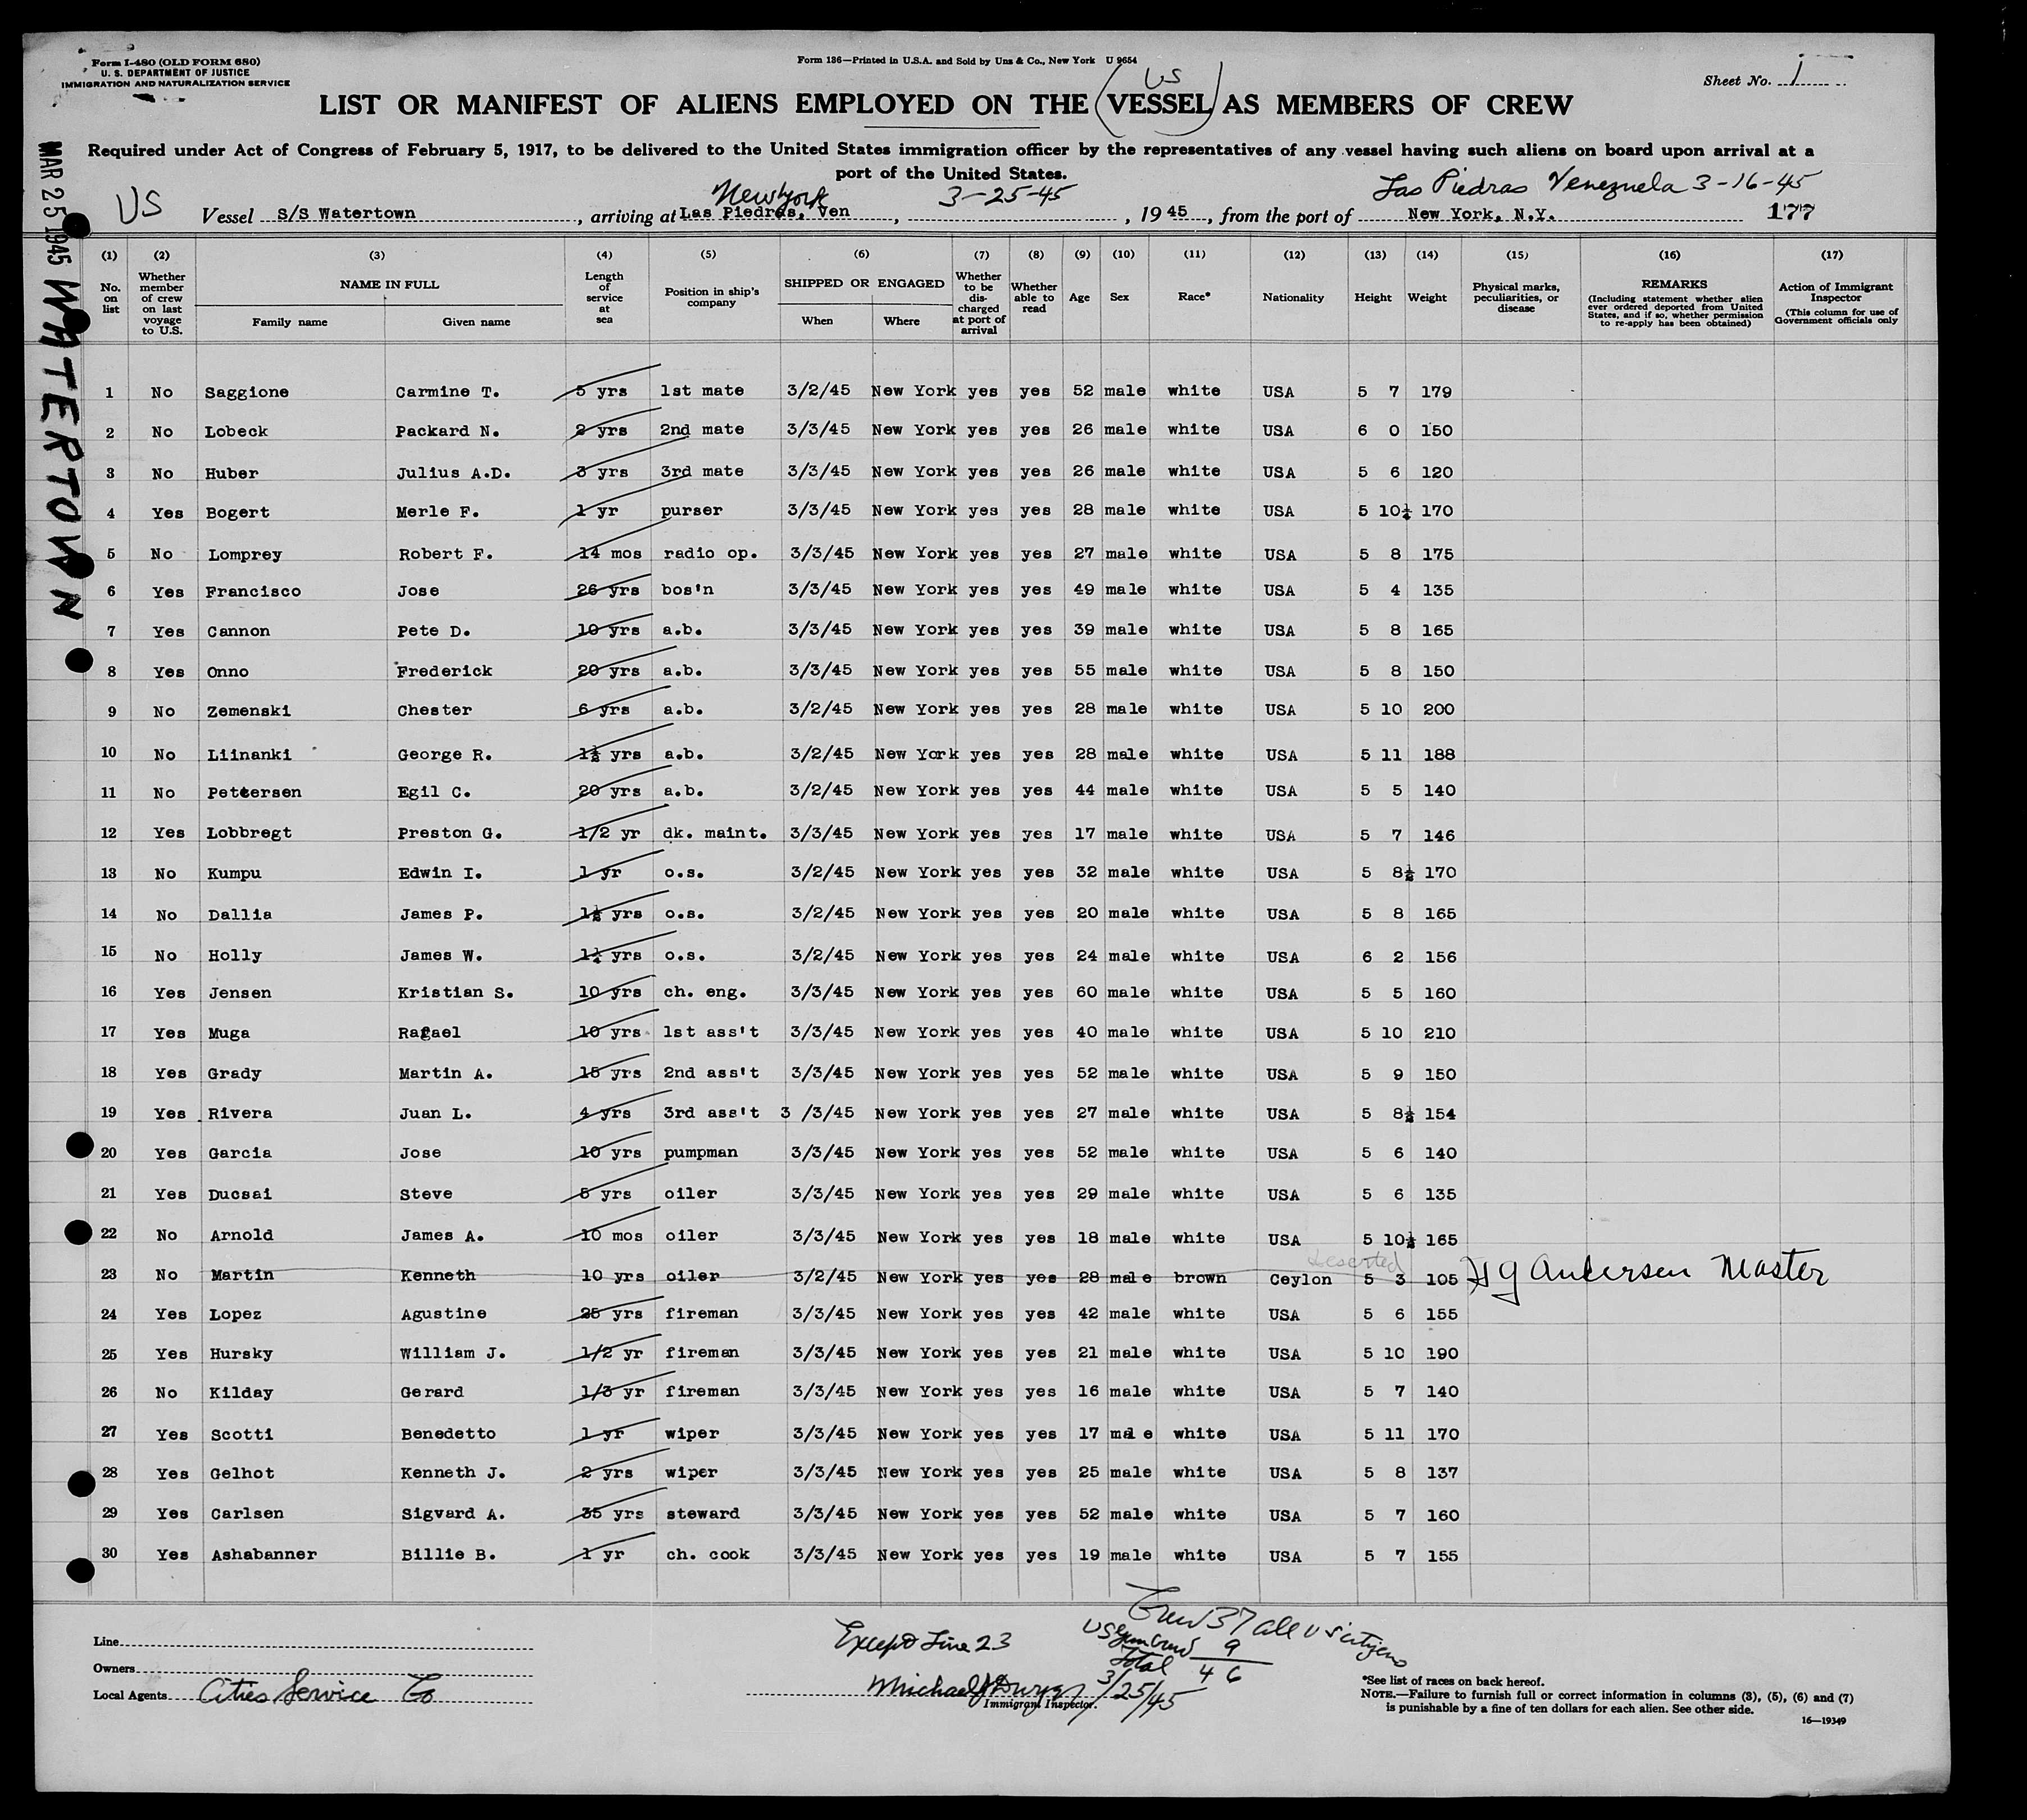 Form I-480 (OLD FORM 680)
U. S. DEPARTMENT OF JUSTICE
IMMIGRATION AND NATURALIZATION SERVICE
Form 136—Printed in U.S.A. and Sold by Unz & Co., New York U 9654
Sheet No. 1
US
LIST OR MANIFEST OF ALIENS EMPLOYED ON THE (VESSEL) AS MEMBERS OF CREW
Required under Act of Congress of February 5, 1917, to be delivered to the United States immigration officer by the representatives of any vessel having such aliens on board upon arrival at a
port of the United States.
MAR 25 1945 WATERTOWN
US
New York 3-25-45 Las Piedras Venezuela 3-16-45
Vessel S/S Watertown, arriving at Las Piedras, Ven, 1945, from the port of New York, N.Y. 177
(1) (2) (3) (4) (5) (6) (7) (8) (9) (10) (11) (12) (13) (14) (15) (16) (17)
No. on list
Whether member of crew on last voyage to U.S.
NAME IN FULL
Family name Given name
Length of service at sea
Position in ship's company
SHIPPED OR ENGAGED
When Where
Whether to be discharged at port of arrival
Whether able to read
Age Sex Race* Nationality Height Weight
Physical marks, peculiarities, or disease
REMARKS
(Including statement whether alien ever ordered deported from United States, and if so, whether permission to re-apply has been obtained)
Action of Immigrant Inspector
(This column for use of Government officials only
1 No Saggione Carmine T. 5 yrs 1st mate 3/2/45 New York yes yes 52 male white USA 5 7 179
2 No Lobeck Packard N. 2 yrs 2nd mate 3/3/45 New York yes yes 26 male white USA 6 0 150
3 No Huber Julius A.D. 3 yrs 3rd mate 3/3/45 New York yes yes 26 male white USA 5 6 120
4 Yes Bogert Merle F. 1 yr purser 3/3/45 New York yes yes 28 male white USA 5 10¼ 170
5 No Lomprey Robert F. 14 mos radio op. 3/3/45 New York yes yes 27 male white USA 5 8 175
6 Yes Francisco Jose 26 yrs bos'n 3/3/45 New York yes yes 49 male white USA 5 4 135
7 Yes Cannon Pete D. 10 yrs a.b. 3/3/45 New York yes yes 39 male white USA 5 8 165
8 Yes Onno Frederick 20 yrs a.b. 3/3/45 New York yes yes 55 male white USA 5 8 150
9 No Zemenski Chester 6 yrs a.b. 3/2/45 New York yes yes 28 male white USA 5 10 200
10 No Liinanki George R. 1½ yrs a.b. 3/2/45 New York yes yes 28 male white USA 5 11 188
11 No Pettersen Egil C. 20 yrs a.b. 3/2/45 New York yes yes 44 male white USA 5 5 140
12 Yes Lobbregt Preston G. 1/2 yr dk. maint. 3/3/45 New York yes yes 17 male white USA 5 7 146
13 No Kumpu Edwin I. 1 yr o.s. 3/2/45 New York yes yes 32 male white USA 5 8½ 170
14 No Dallia James P. 1½ yrs o.s. 3/2/45 New York yes yes 20 male white USA 5 8 165
15 No Holly James W. 1¼ yrs o.s. 3/2/45 New York yes yes 24 male white USA 6 2 156
16 Yes Jensen Kristian S. 10 yrs ch. eng. 3/3/45 New York yes yes 60 male white USA 5 5 160
17 Yes Muga Rafael 10 yrs 1st ass't 3/3/45 New York yes yes 40 male white USA 5 10 210
18 Yes Grady Martin A. 15 yrs 2nd ass't 3/3/45 New York yes yes 52 male white USA 5 9 150
19 Yes Rivera Juan L. 4 yrs 3rd ass't 3 /3/45 New York yes yes 27 male white USA 5 8½ 154
20 Yes Garcia Jose 10 yrs pumpman 3/3/45 New York yes yes 52 male white USA 5 6 140
21 Yes Ducsai Steve 5 yrs oiler 3/3/45 New York yes yes 29 male white USA 5 6 135
22 No Arnold James A. 10 mos oiler 3/3/45 New York yes yes 18 male white USA 5 10½ 165
deserted
23 No Martin Kenneth 10 yrs oiler 3/2/45 New York yes yes 28 male brown Ceylon 5 3 105 H G Andersen Master
24 Yes Lopez Agustine 25 yrs fireman 3/3/45 New York yes yes 42 male white USA 5 6 155
25 Yes Hursky William J. 1/2 yr fireman 3/3/45 New York yes yes 21 male white USA 5 10 190
26 No Kilday Gerard 1/3 yr fireman 3/3/45 New York yes yes 16 male white USA 5 7 140
27 Yes Scotti Benedetto 1 yr wiper 3/3/45 New York yes yes 17 male white USA 5 11 170
28 Yes Gelhot Kenneth J. 2 yrs wiper 3/3/45 New York yes yes 25 male white USA 5 8 137
29 Yes Carlsen Sigvard A. 35 yrs steward 3/3/45 New York yes yes 52 male white USA 5 7 160
30 Yes Ashabanner Billie B. 1 yr ch. cook 3/3/45 New York yes yes 19 male white USA 5 7 155
Crew 37 all US citizens
Except Line 23
US Gun Crew 9
Total 46
Line
Owners
Local Agents Cities Service Co
Michael J 3/25/45
Immigrant Inspector.
*See list of races on back hereof.
NOTE.—Failure to furnish full or correct information in columns (3), (5), (6) and (7)
is punishable by a fine of ten dollars for each alien. See other side.
16—19349